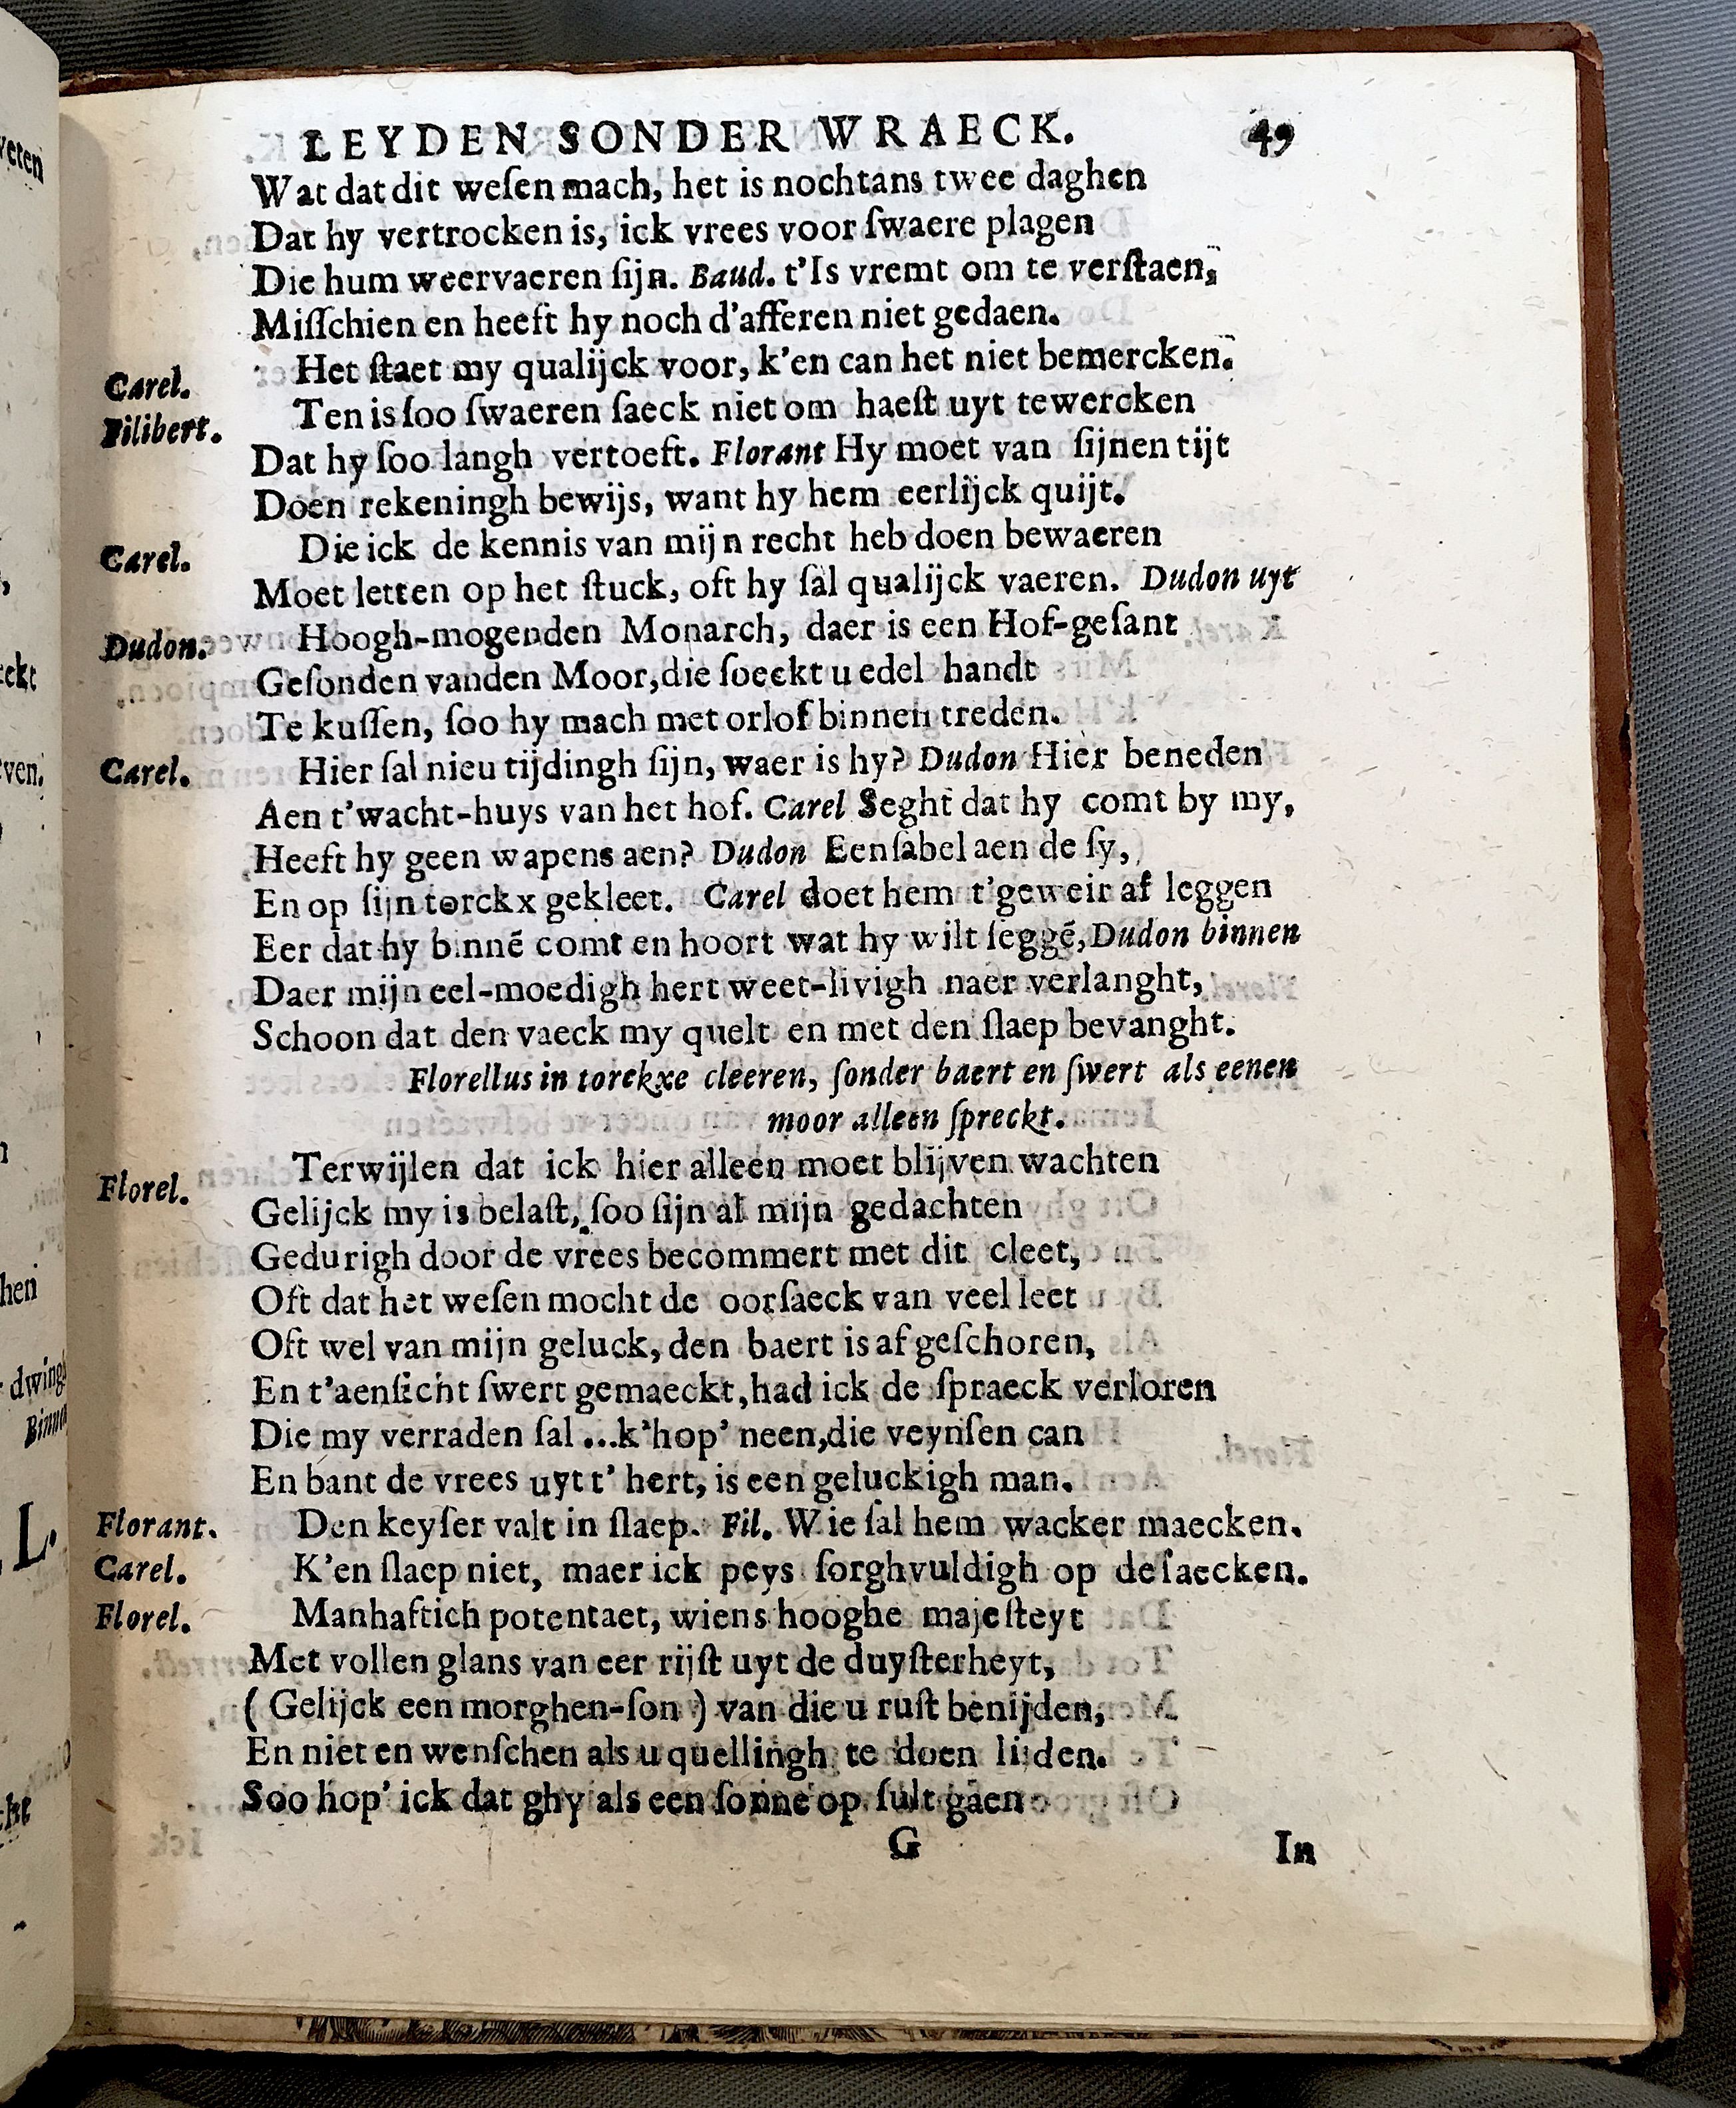 LEYDEN SONDER WRAECK. 49
Wat dat dit weſen mach, het is nochtans twee daghen
Dat hy vertrocken is, ick vrees voor ſwaere plagen
Die hum weervaeren ſijn. Baud. t'Is vremt om te verſtaen,
Miſſchien en heeft hy noch d'afferen niet gedaen.
Carel. Het ſtaet my qualijck voor, k'en can het niet bemercken.
Filibert. Ten is ſoo ſwaeren ſaeck niet om haeſt uyt te wercken
Dat hy ſoo langh vertoeft. Florant Hy moet van ſijnen tijt
Doen rekeningh bewijs, want hy hem eerlijck quijt.
Carel. Die ick de kennis van mijn recht heb doen bewaeren
Moet letten op het ſtuck, oft hy ſal qualijck vaeren. Dudon uyt
Dudon. Hoogh-mogenden Monarch, daer is een Hof-geſant
Geſonden vanden Moor, die ſoeckt u edel handt
Te kuſſen, ſoo hy mach met orlof binnen treden.
Carel. Hier ſal nieu tijdingh ſijn, waer is hy? Dudon Hier beneden
Aen t'wacht-huys van het hof. Carel Seght dat hy comt by my,
Heeft hy geen wapens aen? Dudon Een ſabel aen de ſy,
En op ſijn torckx gekleet. Carel doet hem t'geweir af leggen
Eer dat hy binnē comt en hoort wat hy wilt ſeggē, Dudon binnen
Daer mijn eel-moedigh hert weet-livigh naer verlanght,
Schoon dat den vaeck my quelt en met den ſlaep bevanght.
Florellus in torckxe cleeren, ſonder baert en ſwert als eenen
moor alleen ſpreckt.
Florel. Terwijlen dat ick hier alleen moet blijven wachten
Gelijck my is belaſt, ſoo ſijn al mijn gedachten
Gedurigh door de vrees becommert met dit cleet,
Oft dat het weſen mocht de oorſaeck van veel leet
Oft wel van mijn geluck, den baert is af geſchoren,
En t'aenſicht ſwert gemaeckt, had ick de ſpraeck verloren
Die my verraden ſal ... k'hop' neen, die veynſen can
En bant de vrees uyt t' hert, is een geluckigh man.
Florant. Den keyſer valt in ſlaep. Fil. Wie ſal hem wacker maecken.
Carel. K'en ſlaep niet, maer ick peys ſorghvuldigh op de ſaecken.
Florel. Manhaftich potentaet, wiens hooghe majeſteyt
Met vollen glans van eer rijſt uyt de duyſterheyt,
( Gelijck een morghen-ſon ) van die u ruſt benijden,
En niet en wenſchen als u quellingh te doen lijden.
Soo hop' ick dat ghy als een ſonne op ſult gaen
G In